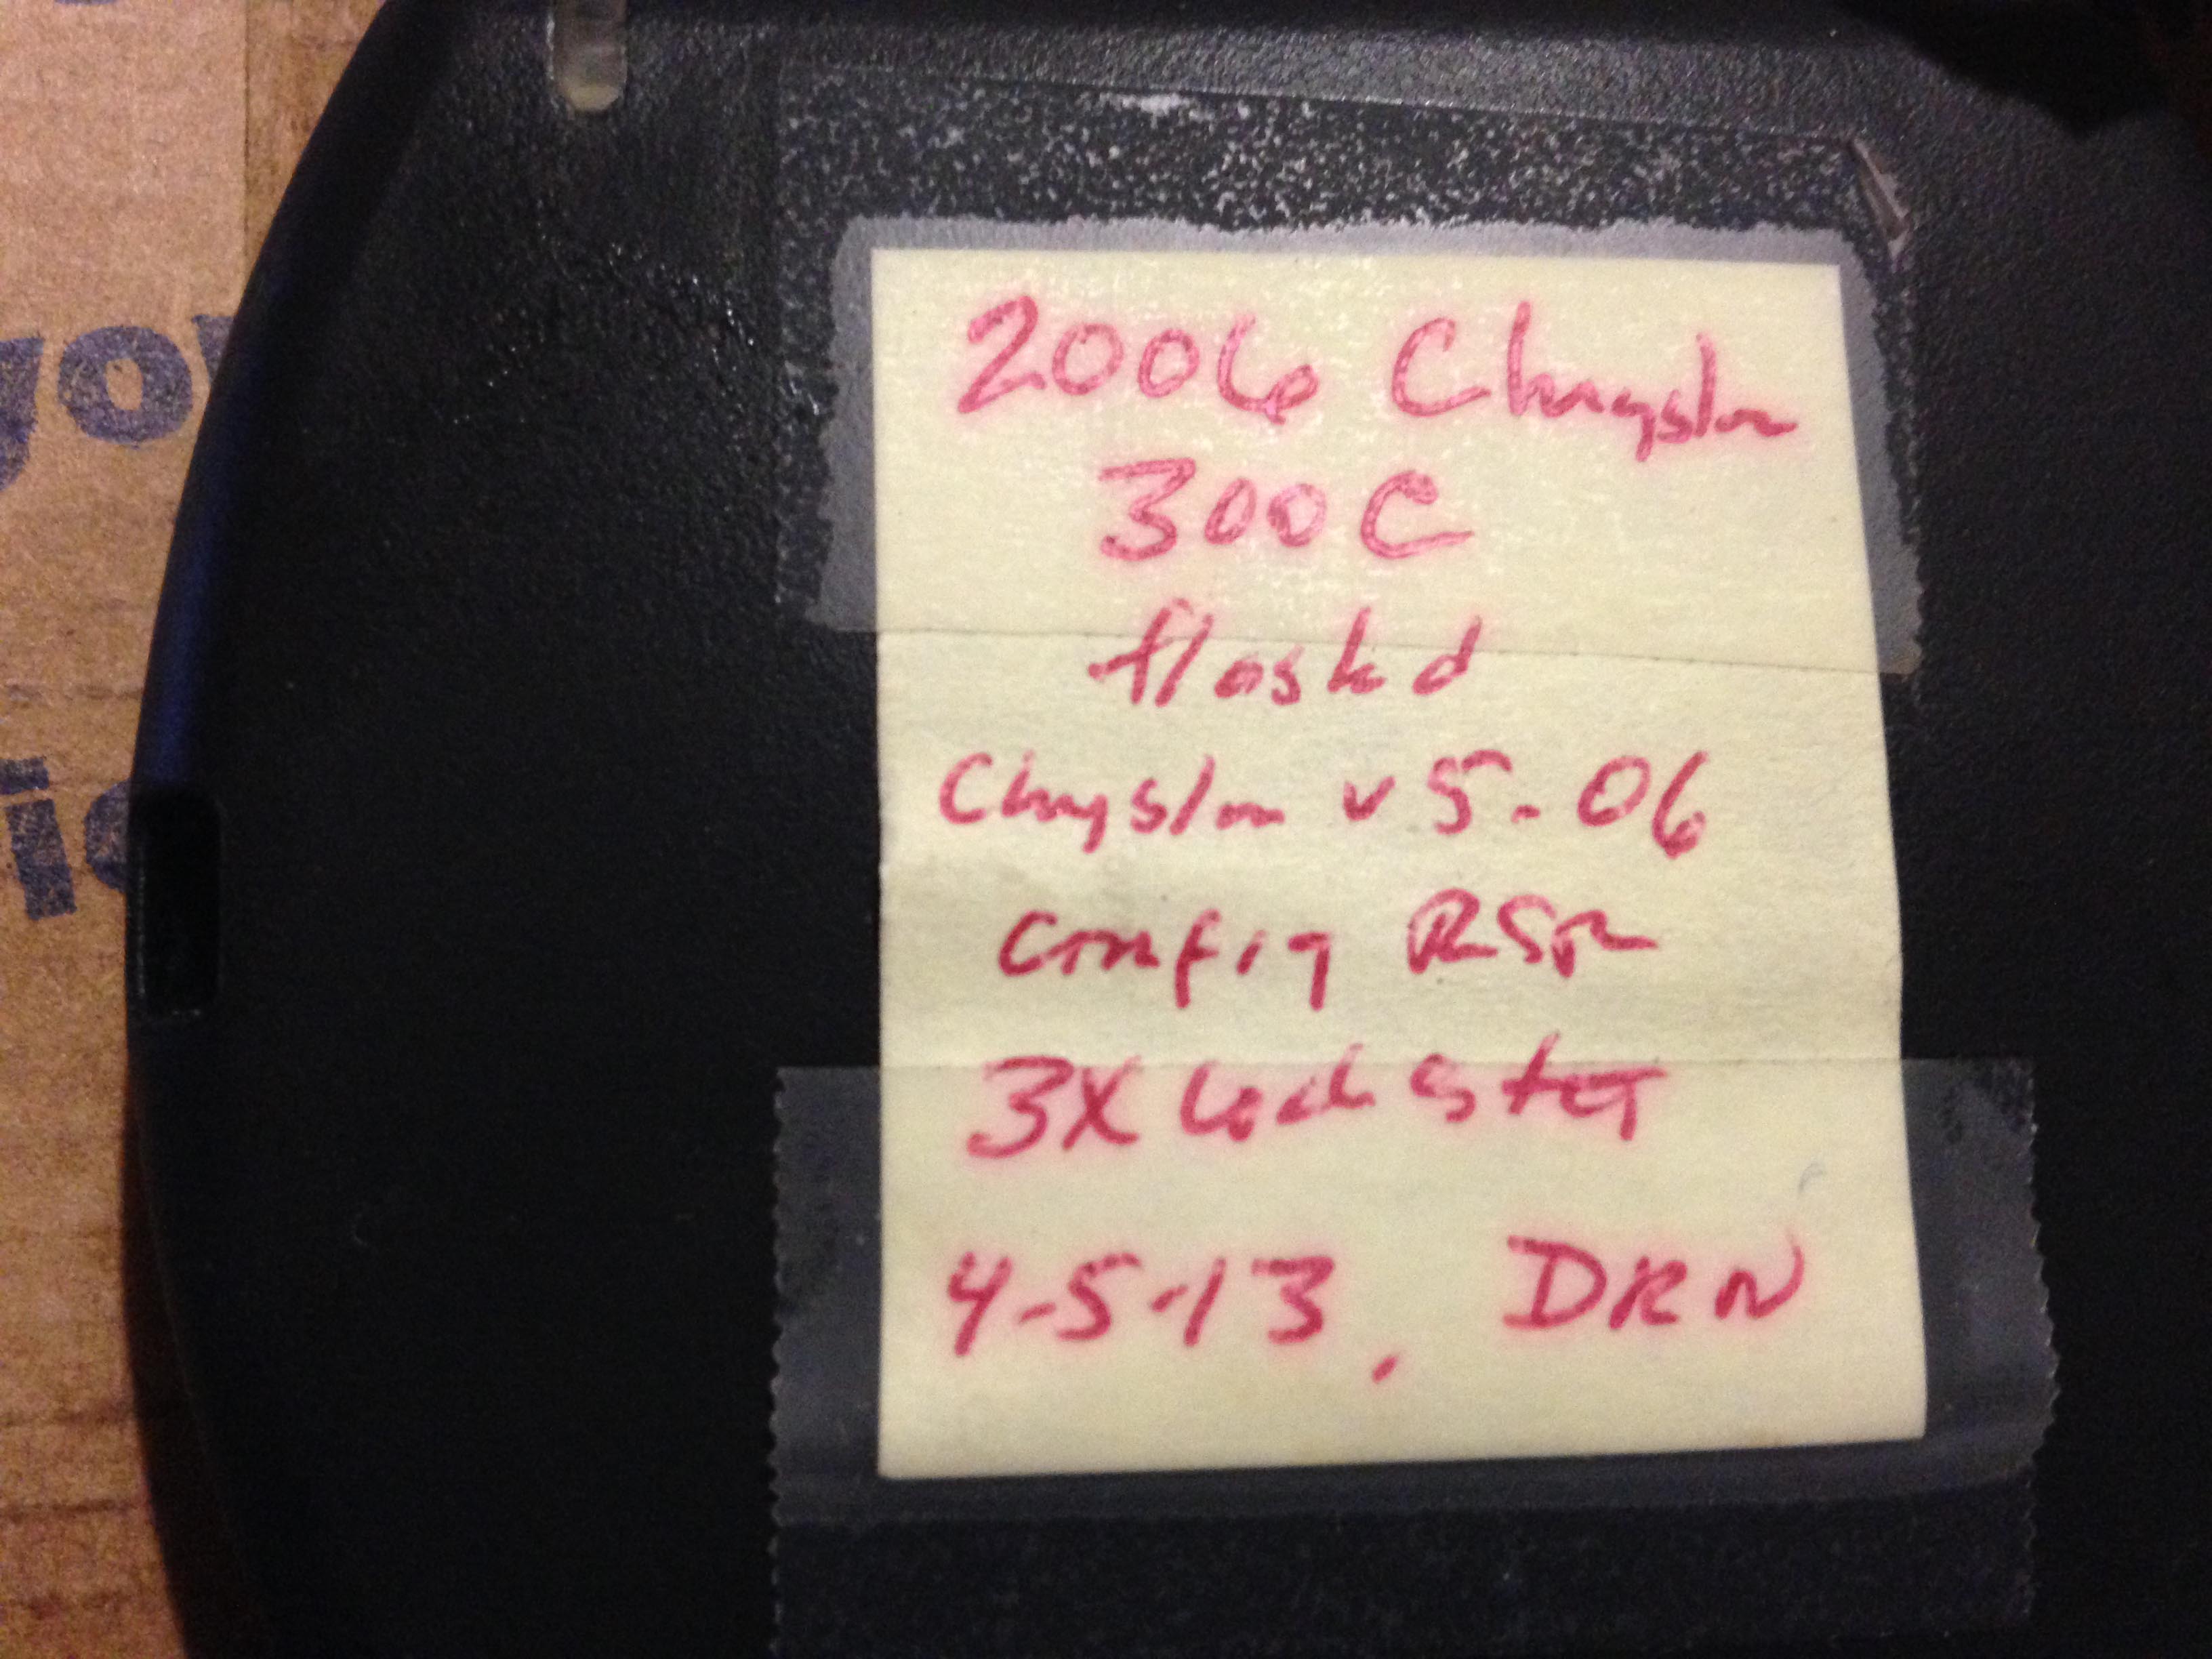 yo
ic
2006 Chrysler
300C
flashed
Chrysler v 5.06
config RSR
3X lock start
4-5-13. DRN